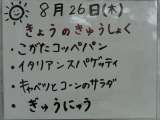 8月26日(木)
きょうのきゅうしょく
・こがたコッペパン
・イタリアンスパゲッティ
・キャベツとコーンのサラダ
・ぎゅうにゅう